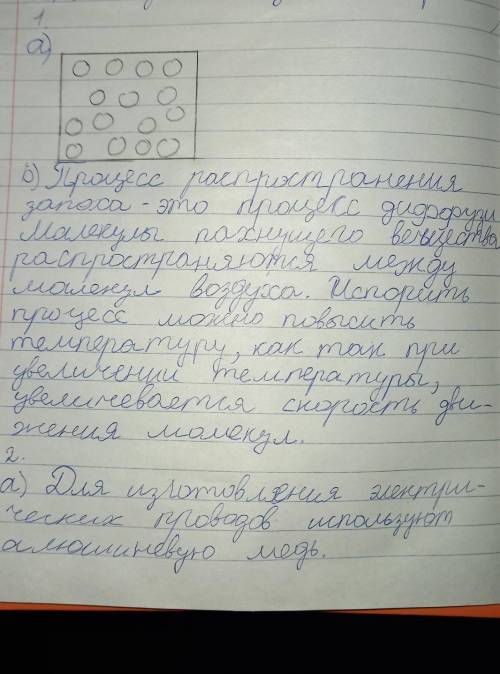 1.
а)
в) Процесс распространения
запаха - это процесс диффузи
Малекулы пахнущего вещества
распространяются между
малекул воздуха. Испорить
процесс можно повысить
температуру, как так при
увеличении температуры,
увеличевается скорость дви-
жения малекул.
2.
а) Для изготовления электри-
ческих проводов используют
алюминевую медь.